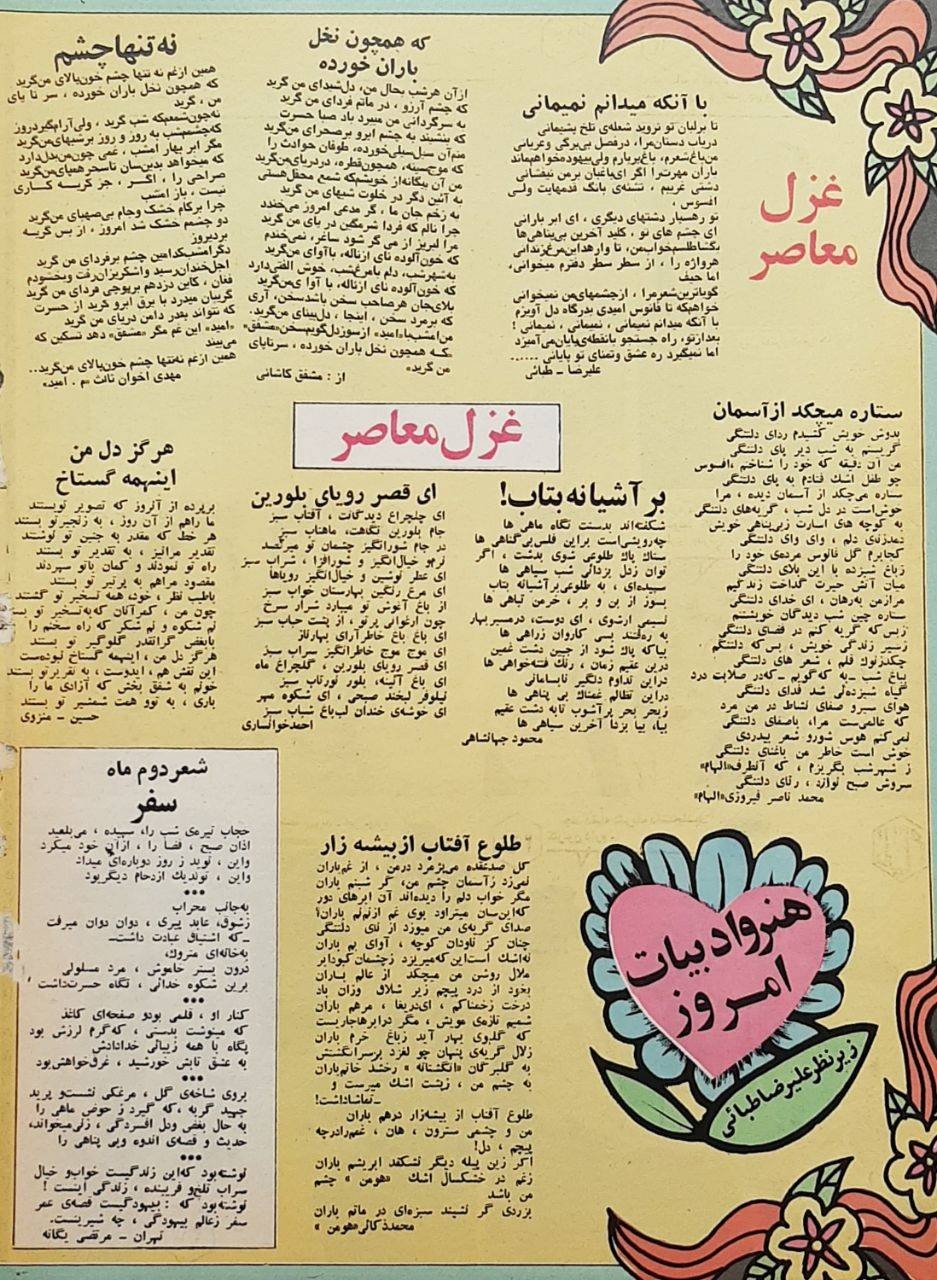 غزل
معاصر
با آنکه میدانم نمیمانی
تا برلبان تو نروید شعله‌ی تلخ پشیمانی
دریاب دستان‌مرا، درفصل بی‌برگی وعریانی
من‌باغ‌شعرم، باغ‌پربارم ولی‌بیهوده‌خواهم‌ماند
باران مهرت‌را اگر ای‌باغبان برمن نیفشانی
دشتی غریبم ، تشنه‌ی بانگ قدمهایت ولی
افسوس ،
تو رهسپار دشتهای دیگری ، ای ابر بارانی
ای چشم های تو ، کلید آخرین بی‌پناهی‌ها
بگشاطلسم‌خواب‌من، تا وارهداین‌مرغ‌زندانی
هرواژه را ، از سطر سطر دفترم میخوانی،
اما حیف
گویاترین‌شعرمرا ، ازچشمهای‌من نمیخوانی
خواهم‌که تا فانوس امیدی بدرگاه دل آویزم
با آنکه میدانم نمیمانی ، نمیمانی ، نمیمانی !
بعدازتو، راه جستجو بانقطه‌ی‌پایان‌می‌آمیزد
اما نمیگیرد ره عشق وتمنای تو پایانی ......
علیرضا ـ طبائی
که همچون نخل
باران خورده
ازآن هرشب بحال من، دل‌شیدای من گرید
که چشم آرزو ، در ماتم فردای من گرید
به سرگردانی من میبرد باد صبا حسرت
که بنشیند به چشم ابرو برصحرای من‌گرید
منم‌آن سیل‌سیلی‌خورده، طوفان حوادث را
که موج‌سینه، همچون‌قطره، دردریای‌من‌گرید
من آن بیگانه‌ازخویشم‌که شمع محفل‌هستی
به آئین دگر در خلوت شبهای من گرید
به زخم جان ما ، گر مدعی امروز می‌خندد
چرا نالم که فردا شرمگین در پای من گرید
مرا لبریز از می گر شود ساغر، نمی‌خندم
که خون‌آلوده نای ازناله، باآوای من‌گرید
به‌شهرشب، دلم بامرغ‌شب، خوش الفتی‌دارد
که خون‌آلوده نای ازناله، با آوا ی‌من‌گرید
بلای‌جان هرصاحب سخن باشدسخن، آری
که برمرد سخن ، اینجا ، دل‌بینای من‌گرید.
من‌امشب‌با«امید» ازسوزدل‌گویم‌سخن«مشفق»
«که همچون نخل باران خورده ، سرتاپای
من گرید»
از : مشفق کاشانی
نه تنها چشم
همین ازغم نه تنها چشم خون‌پالای من‌گرید
که همچون نخل باران خورده ، سر تا پای
من ، گرید
نه‌چون‌شمعم‌که شب گرید ، ولی‌آرام‌گیردروز
که‌چشمم‌شب به روز و روز برشبهای‌من‌گرید
مگر ابر بهار امشب ، غمی چون‌من‌بدل‌دارد
که میخواهد بدین‌سان تاسحرهمپای‌من‌گرید
صراحی را ، اگر ، جز گریه کاری
نیست ، باز امشب
چرا برکام خشک وجام بی‌صهبای من‌گرید
دو چشمم خشک شد امروز ، از بس گریه
بردیروز
دگرامشب‌کدامین چشم برفردای من گرید
اجل‌خندان‌رسید واشکریزان‌رفت وبخشودم
فغان ، کاین دزدهم برپوچی فردای من گرید
گریبان میدرد با برق ابرو گرید از حسرت
که نتواند بقدر دامن دریای من گرید
«امید» این غم مگر «مشفق» دهد تسکین که
می‌بیند
همین ازغم نه‌تنها چشم خون‌پالای من‌گرید..
مهدی اخوان ثالث «م . امید»
غزل معاصر
ستاره میچکد ازآسمان
بدوش خویش کشیدم ردای دلتنگی
گریستم به شب دیر پای دلتنگی
من آن دقیقه که خود را شناختم ،افسوس
چو طفل اشك فتادم به پای دلتنگی
ستاره می‌چکد از آسمان دیده ، مرا
خوش‌است در دل شب ، گریه‌های دلتنگی
به کوچه های اسارت زبی‌پناهی خویش
دمدزنای دلم ، وای وای دلتنگی
کجابرم گل فانوس مرده‌ی خود را
زباغ شبزده با این بلای دلتنگی
میان آتش حیرت گداخت زندگیم
مرازمن به‌رهان ، ای خدای دلتنگی
ستاره چین شب دیدگان خویشتنم
زبس‌که گریه کنم در فضای دلتنگی
زسیر زندگی خویش ، بس‌که دلتنگم
چکدزنوك قلم ، شعر های دلتنگی
بباغ شب ـبه که‌گویم ـکه‌در صلابت درد
گیاه شبزده‌لی شد فدای دلتنگی
هوای سیرو صفای نشاط در من مرد
که عالمی‌ست مرا، باصفای دلتنگی
نمی‌کنم هوس شورو شعر بیدردی
خوش است خاطر من باغنای دلتنگی
ز شهرشب بگریزم ، که آنطرف«الهام»
سروش صبح نوازد ، رثای دلتنگی
محمد ناصر فیروزی«الهام»
بر آشیانه بتاب!
شکفته‌اند بدستت نگاه ماهی ها
چه‌رویشی‌ست براین فلس‌بی‌گناهی ها
ستاك پاك طلوعی شوی بدشت ، اگر
توان زدل بزدائی شب سیاهی ها
سپیده‌ای ، به طلوعی‌برآشیانه بتاب
بسوز از بن و بر ، خرمن تباهی ها
نسیمی ازشوی ، ای دوست، درمسیربهار
به ره‌فتند بسی کاروان زراهی ها
بیاکه پاك شود از جبین دشت غمین
درین عقیم زمان ، رنگ فتنه‌خواهی ها
دراین تداوم دلگیر نابسامانی
دراین تظالم غمناك بی پناهی ها
زبحر بحر پرآشوب تابه دشت عقیم
بیا، بیا بزدا آخرین سیاهی ها
محمود جهانشاهی
ای قصر رویای بلورین
ای چلچراغ دیدگانت ، آفتاب سبز
جام بلورین نگاهت، ماهتاب سبز
در جام شورانگیز چشمان تو میرقصد
نرم‌و خیال‌انگیز و شورافزا ، شراب سبز
ای عطر نوشین و خیال‌انگیز رویاها
ای مرغ رنگین بهارستان خواب سبز
از باغ آغوش تو میبارد شرار سرخ
چون ارغوانی پرتو ، از پشت حباب سبز
ای باغ باغ خاطرآرای بهارناز
ای موج موج خاطرانگیز سراب سبز
ای قصر رویای بلورین ، گلچراغ ماه
ای باغ آئینه، بلور نورتاب سبز
نیلوفر لبخند صبحی ، ای شکوه مهر
ای خوشه‌ی خندان لب‌باغ شباب سبز
احمدخوانساری
هرگز دل من
اینهمه گستاخ
برپرده از آنروز که تصویر توبستند
ما راهم از آن روز ، به زنجیرتو بستند
هر خط که مقدر به جبین تو نوشتند
تقدیر مرانیز ، به تقدیر تو بستند
راه تو نمودند و کمان باتو سپردند
مقصود مراهم به پرتیر تو بستند
باطیب نظر ، خود، همه تسخیر تو گشتند
چون من ، کمرآنان که‌به‌تسخیر تو بستند
نم شکوه و نم شکر که راه سخنم را
بابغض گرانقدر گلوگیر تو بستند
هرگز دل من ، اینهمه گستاخ نبوده‌ست
این نقش هم، ایدوست ، به تقریرتو بستند
خونم به شفق بخش که آزادی ما را
باری ، به توو همت شمشیر تو بستند
حسین ـ منزوی
شعر دوم ماه
سفر
حجاب تیره‌ی شب را، سپیده ، می‌بلعید
اذان صبح ، فضا را ، ازآن خود میکرد
واین ، نوید ز روز دوباره‌ای میداد
واین ، توندیك ازدحام دیگربود
•••
به‌جانب محراب
زشوق، عابد پیری ، دوان دوان میرفت
ـکه اشتیاق عبادت داشت‌ـ
به‌خانه‌ای متروك،
درون بستر خاموش ، مرد مسلولی
برین شکوه خدائی ، نگاه حسرت‌داشت
•••
کنار او ، قلمی بودو صفحه‌ای کاغذ
که مینوشت بدستی ، که‌گرم لرزش بود
پگاه با همه زیبائی خدادادش
به عشق تابش خورشید ، غرق‌خواهش‌بود
•••
بروی شاخه‌ی گل ، مرغکی نشست‌و پرید
جهید گربه ،که گیرد ز حوض ماهی را
به حال بغض ودل افسردگی ، زنی‌میخواند،
حدیث و قصه‌ی اندوه وبی پناهی را
•••
نوشته‌بود که‌این زندگیست خواب‌و خیال
سراب تلخ‌و فریبنده ، زندگی اینست !
نوشته‌بود که : بیهودگیست قصه‌ی عمر
سفر زعالم بیهودگی ، چه شیرینست.
تهران ـ مرتضی یگانه
طلوع آفتاب از بیشه زار
گل صدعقده می‌پژمرد درمن ، از غم‌باران
نمی‌زد زآسمان چشم من، گر شبنم باران
مگر خواب دلم را دیده‌اند آن ابرهای دور
که‌این‌سان میتراود بوی غم ازنم‌نم باران؟
صدای گریه‌ی من میوزد از نای دلتنگی
چنان کز ناودان کوچه ، آوای بم باران
نه‌اشك است‌این‌که‌میریزد زچشمان‌کبودابر
ملال روشن من میچکد از عالم باران
بخود از درد پیچم زیر شلاق وزان باد
درخت زخمناکم ، ای‌دریغا ، مرهم باران
شمیم تازه‌ی مویش ، مگر درابرهاجاریست
که گلدوی بهار آید زباغ خرم باران
زلال گریه‌ی پنهان چو لغزد برسرانگشتش
به گلبرگان «انگشتانه » رخشد خاتم‌باران
به چشم من ، زپشت اشك میرست و
ـتماشاداشت!
طلوع آفتاب از بیشه‌زار درهم باران
من و چشمی سترون ، هان ، غم‌رادرچه
پیچم ، دل!
اگر زین پیله دیگر نشکفد ابریشم باران
زغم در خشکسال اشك «هومن » چشم
من باشد
بزردی گر نشیند سبزه‌ای در ماتم باران
محمدذکائی«هومن »
هنرو ادبیات
امروز
زیر نظر علیرضا طبائی